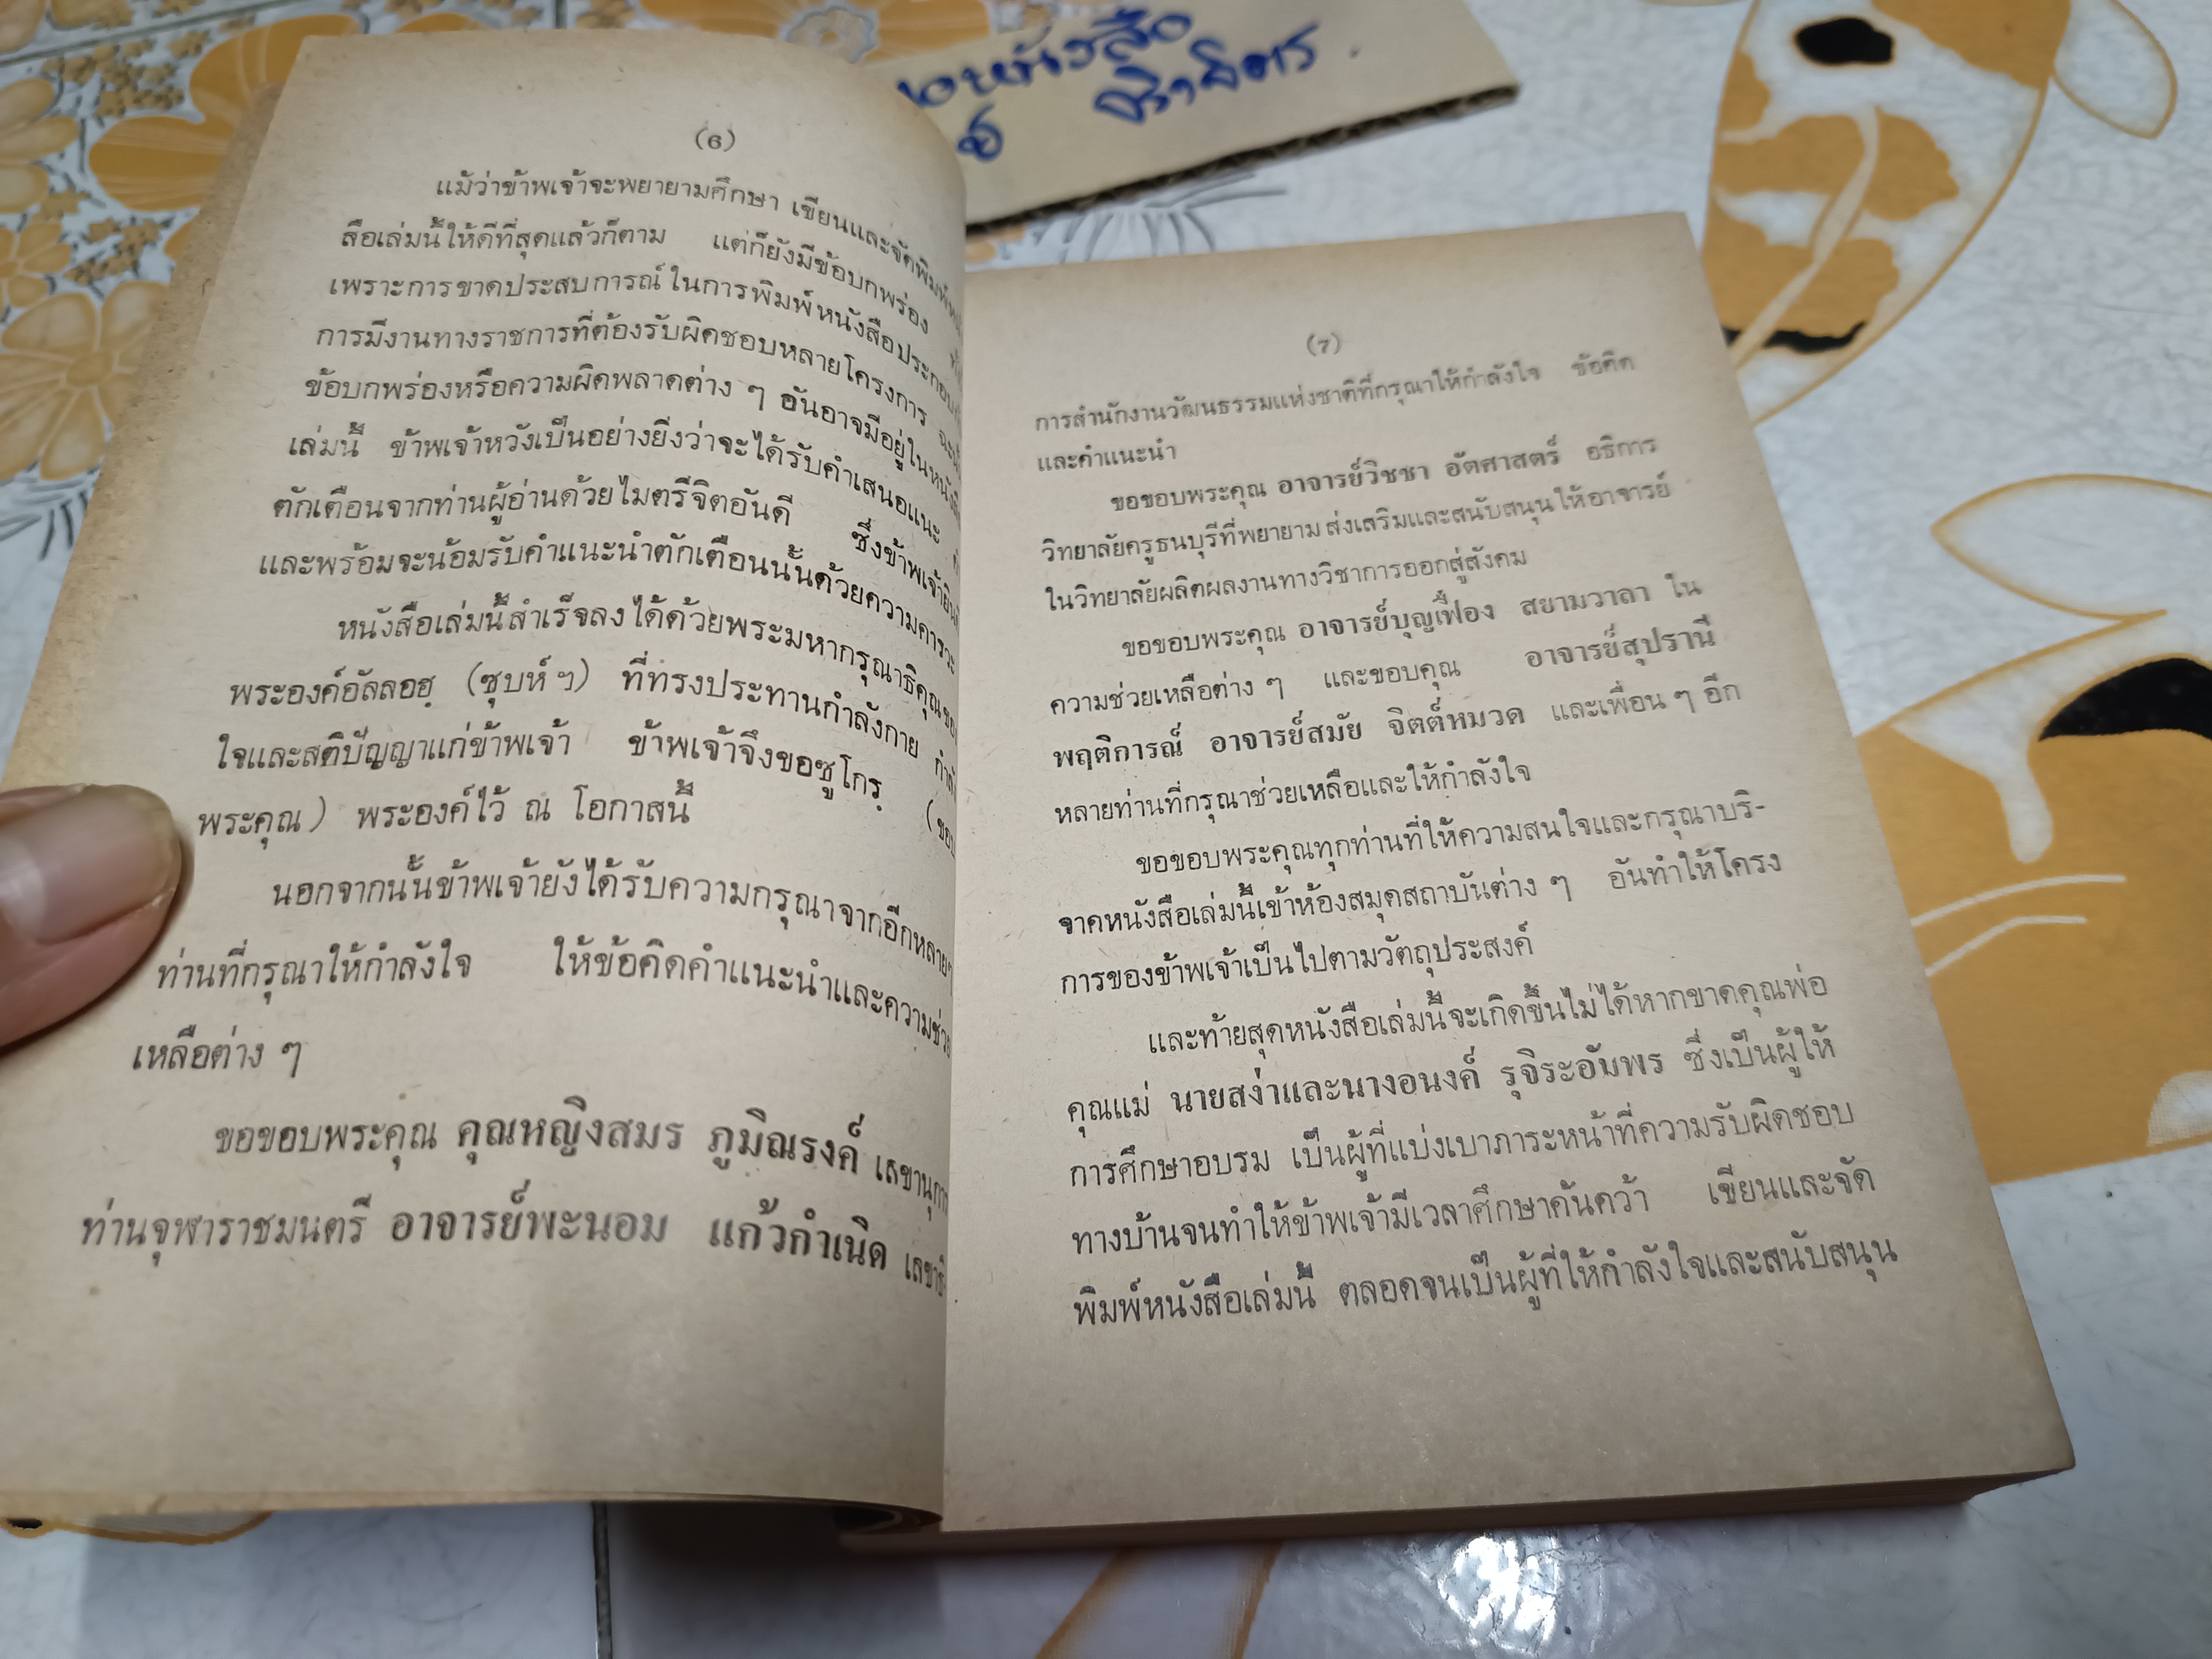 หนังสือ
(6)
แม้ว่าข้าพเจ้าจะพยายามศึกษา เขียนและจัดพิมพ์
สือเล่มนี้ให้ดีที่สุดแล้วก็ตาม แต่ก็ยังมีข้อบกพร่อง
เพราะการขาดประสบการณ์ในการพิมพ์หนังสือประกอบ
การมีงานทางราชการที่ต้องรับผิดชอบหลายโครงการ
ข้อบกพร่องหรือความผิดพลาดต่าง ๆ อันอาจมีอยู่ในหนังสือ
เล่มนี้ ข้าพเจ้าหวังเป็นอย่างยิ่งว่าจะได้รับคำเสนอแนะ
ตักเตือนจากท่านผู้อ่านด้วยไมตรีจิตอันดี ซึ่งข้าพเจ้ายินดี
และพร้อมจะน้อมรับคำแนะนำตักเตือนนั้นด้วยความคารวะ
หนังสือเล่มนี้สำเร็จลงได้ด้วยพระมหากรุณาธิคุณของ
พระองค์อัลลอฮฺ (ซุบห์ฯ) ที่ทรงประทานกำลังกาย
ใจและสติปัญญาแก่ข้าพเจ้า ข้าพเจ้าจึงขอซูโกรฺ (ขอบ
พระคุณ) พระองค์ไว้ ณ โอกาสนี้
นอกจากนั้นข้าพเจ้ายังได้รับความกรุณาจากอีกหลายๆ
ท่านที่กรุณาให้กำลังใจ ให้ข้อคิดคำแนะนำและความช่วย
เหลือต่าง ๆ
ขอขอบพระคุณ คุณหญิงสมร ภูมิณรงค์ เลขานุการ
ท่านจุฬาราชมนตรี อาจารย์พะนอม แก้วกำเนิด
(7)
การสำนักงานวัฒนธรรมแห่งชาติที่กรุณาให้กำลังใจ ข้อคิด
และคำแนะนำ
ขอขอบพระคุณ อาจารย์วิชชา อัตศาสตร์ อธิการ
วิทยาลัยครูธนบุรีที่พยายามส่งเสริมและสนับสนุนให้อาจารย์
ในวิทยาลัยผลิตผลงานทางวิชาการออกสู่สังคม
ขอขอบพระคุณ อาจารย์บุญเฟื่อง สยามวาลา ใน
ความช่วยเหลือต่าง ๆ และขอบคุณ อาจารย์สุปราณี
พฤติการณ์ อาจารย์สมัย จิตต์หมวด และเพื่อน ๆ อีก
หลายท่านที่กรุณาช่วยเหลือและให้กำลังใจ
ขอขอบพระคุณทุกท่านที่ให้ความสนใจและกรุณาบริ-
จาคหนังสือเล่มนี้เข้าห้องสมุดสถาบันต่าง ๆ อันทำให้โครง
การของข้าพเจ้าเป็นไปตามวัตถุประสงค์
และท้ายสุดหนังสือเล่มนี้จะเกิดขึ้นไม่ได้หากขาดคุณพ่อ
คุณแม่ นายสง่าและนางอนงค์ รุจิระอัมพร ซึ่งเป็นผู้ให้
การศึกษาอบรม เป็นผู้ที่แบ่งเบาภาระหน้าที่ความรับผิดชอบ
ทางบ้านจนทำให้ข้าพเจ้ามีเวลาศึกษาค้นคว้า เขียนและจัด
พิมพ์หนังสือเล่มนี้ ตลอดจนเป็นผู้ที่ให้กำลังใจและสนับสนุน